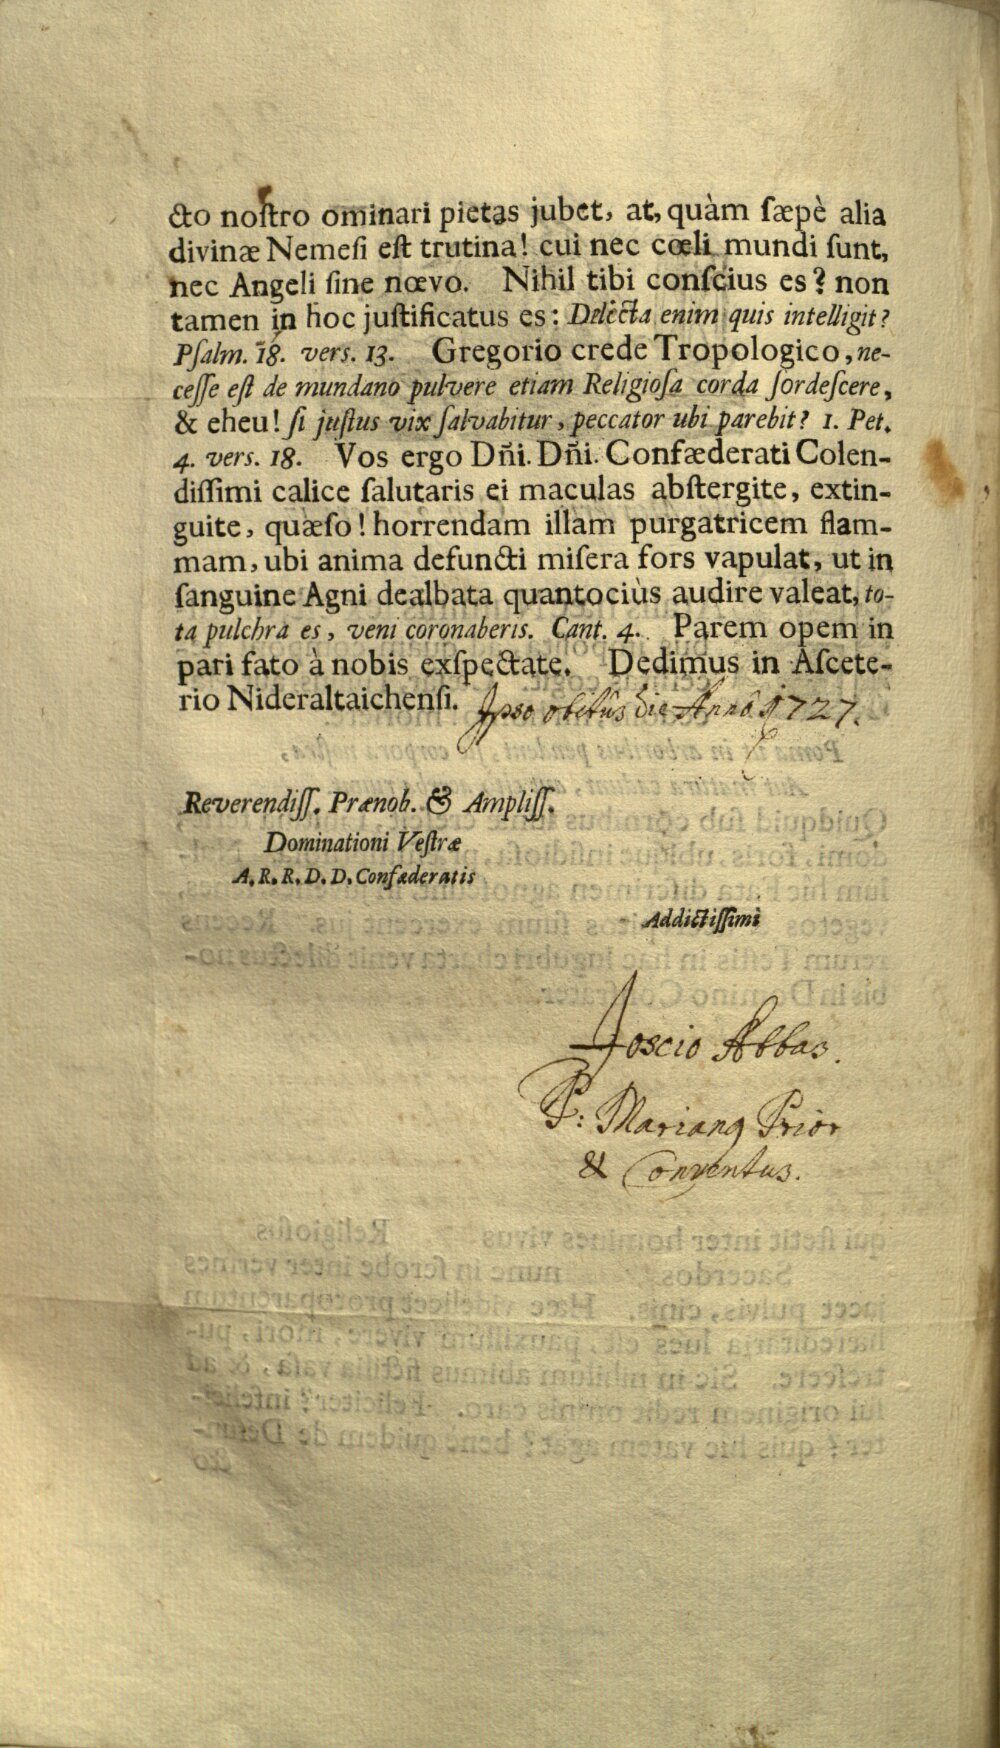 cto noſtro ominari pietas jubet, at, quàm ſæpè alia
divinæ Nemeſi eſt trutina! cui nec cœli mundi ſunt,
nec Angeli ſine nœvo. Nihil tibi conſcius es? non
tamen in hoc juſtificatus es: Delicta enim quis intelligit?
Pſalm. 18. vers. 13. Gregorio crede Tropologico, ne-
ceſſe eſt de mundano pulvere etiam Religioſa corda ſordeſcere,
& eheu! ſi juſtus vix ſalvabitur, peccator ubi parebit? 1. Pet.
4. vers. 18. Vos ergo Dñi. Dñi. Confæderati Colen-
diſſimi calice ſalutaris ei maculas abſtergite, extin-
guite, quæſo! horrendam illam purgatricem flam-
mam, ubi anima defuncti miſera fors vapulat, ut in
ſanguine Agni dealbata quantociùs audire valeat, to-
ta pulchra es, veni coronaberis. Cant. 4. Parem opem in
pari fato à nobis exſpectate. Dedimus in Aſcete-
rio Nideraltaichenſi. Ipso obitûs die Annô 1727.
Reverendiſſ. Prænob. & Ampliſſ.
Dominationi Veſtræ
A. R. R. D. D. Confæderatis
Addictiſſimi
Joscio Abbas.
P: Marianꝰ Prior
& Conventus.